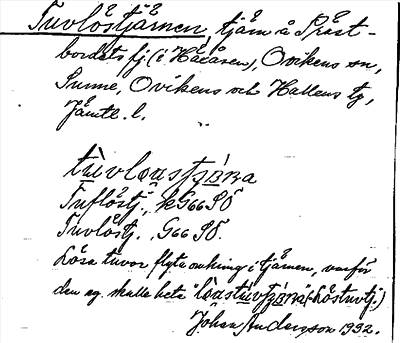 Tuvlöstjärnen, tjärn å Präst-
bordets fj. (i Håråsen), Ovikens sn,
Sunne, Ovikens och Hallens tg,
Jämtl. l.
Tuflöstj., kG66 SÖ
Tuvlöstj., G66 SÖ.
Lösa tuvor flyta omkring i tjärnen, varför
den eg. skulle heta (Löstuvtj.)
Johan Andersson 1932.